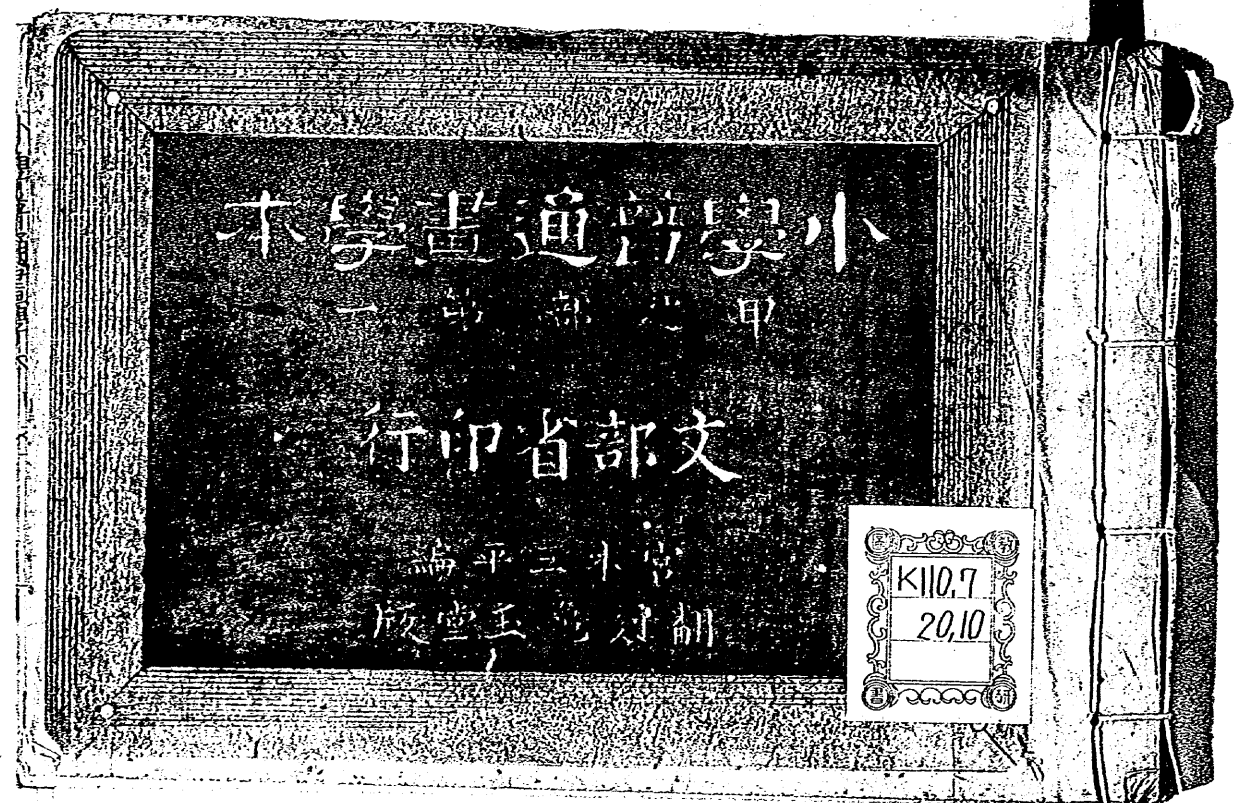 小學普通畫學本
甲之部第一
文部省印行
宮本三平編
翻刻 玉堂版
K110,7
20,10